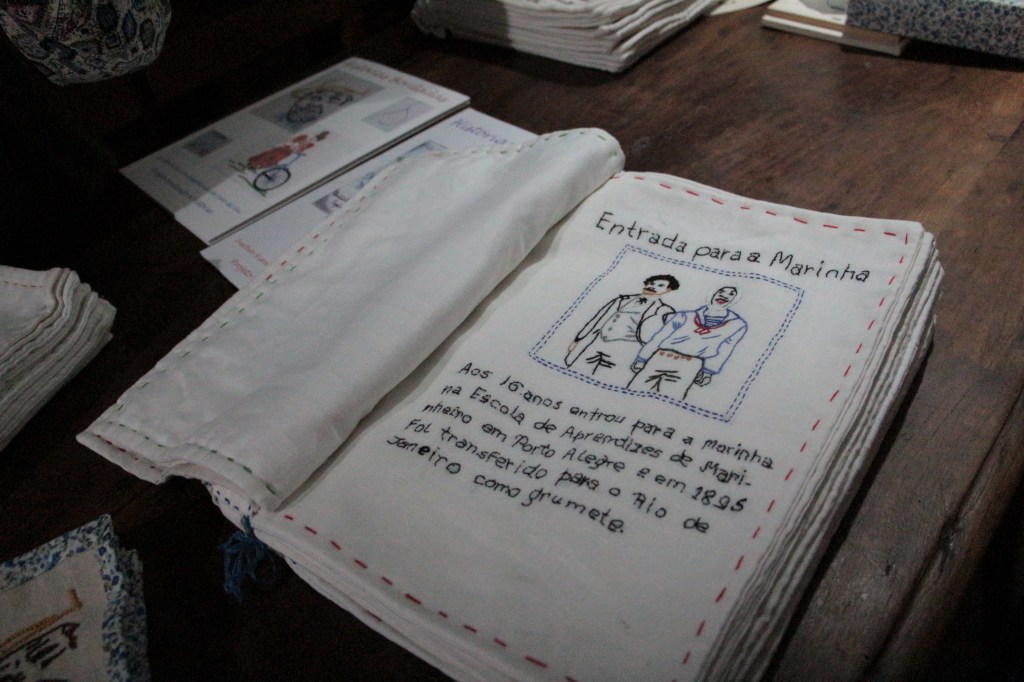 Entrada para a Marinha
Aos 16 anos entrou para a marinha
na Escola de Aprendizes de Mari-
nheiro em Porto Alegre e em 1895
Foi transferido para o Rio de
Janeiro como grumete.